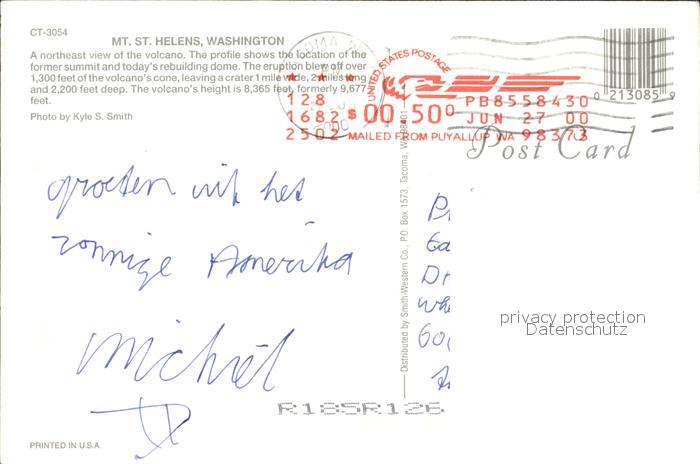 CT-3054
MT. ST. HELENS, WASHINGTON
A northeast view of the volcano. The profile shows the location of the
former summit and today's rebuilding dome. The eruption blew off over
1,300 feet of the volcano's cone, leaving a crater 1 mile wide, 2 miles long
and 2,200 feet deep. The volcano's height is 8,365 feet, formerly 9,677
feet.
Photo by Kyle S. Smith
TACOMA W
UNITED STATES POSTAGE
128
1682
2502
$00.500
PB8558430
JUN 27 00
MAILED FROM PUYALLUP WA 98373
0 213085 9
Post Card
groeten uit het
zonnige Amerika
Michiel
Distributed by Smith-Western Co., P.O. Box 1573, Tacoma, WA 98401
privacy protection
Datenschutz
R185R126
PRINTED IN U.S.A.